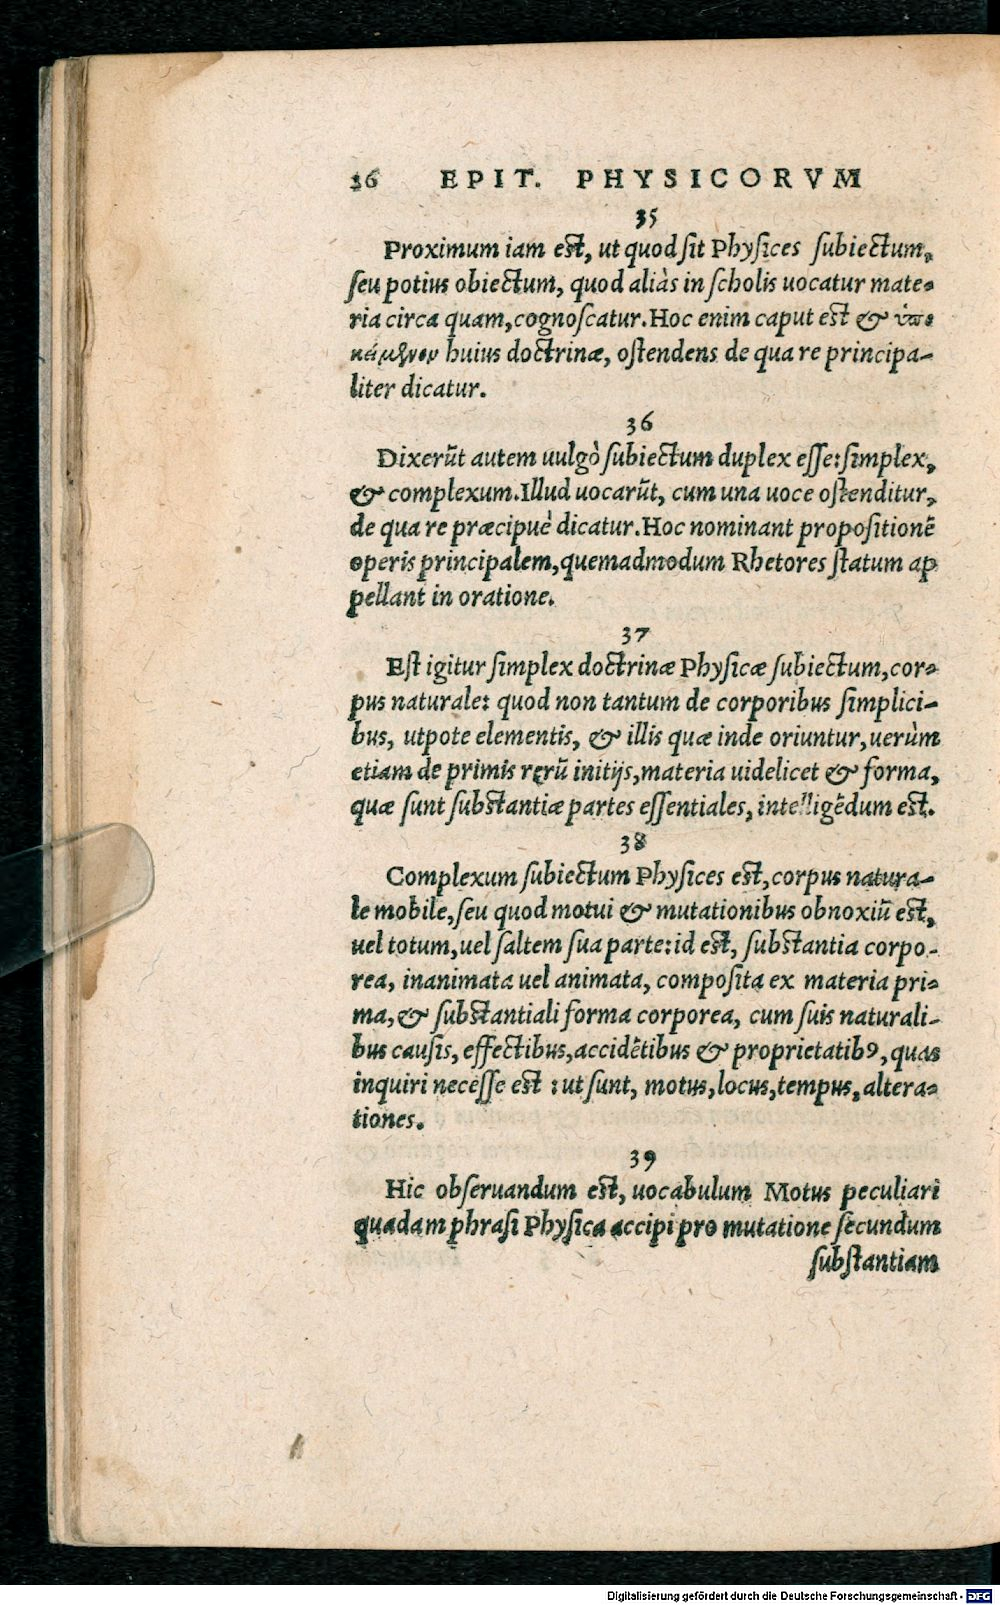 36 EPIT. PHYSICORVM
35
Proximum iam est, ut quod sit Physices subiectum,
seu potius obiectum, quod aliàs in scholis uocatur mate-
ria circa quam, cognoscatur. Hoc enim caput est & ὑπο
κείμενον huius doctrinæ, ostendens de qua re principa-
liter dicatur.
36
Dixerūt autem uulgò subiectum duplex esse: simplex,
& complexum. Illud uocarūt, cum una uoce ostenditur,
de qua re præcipuè dicatur. Hoc nominant propositionē
operis principalem, quemadmodum Rhetores statum ap
pellant in oratione.
37
Est igitur simplex doctrinæ Physicæ subiectum, cor-
pus naturale: quod non tantum de corporibus simplici-
bus, utpote elementis, & illis quæ inde oriuntur, uerùm
etiam de primis rerū initijs, materia uidelicet & forma,
quæ sunt substantiæ partes essentiales, intelligēdum est.
38
Complexum subiectum Physices est, corpus natura-
le mobile, seu quod motui & mutationibus obnoxiū est,
uel totum, uel saltem sua parte: id est, substantia corpo-
rea, inanimata uel animata, composita ex materia pri-
ma, & substantiali forma corporea, cum suis naturali-
bus causis, effectibus, accidētibus & proprietatibꝰ, quas
inquiri necesse est: ut sunt, motus, locus, tempus, altera-
tiones.
39
Hic obseruandum est, uocabulum Motus peculiari
quadam phrasi Physica accipi pro mutatione secundum
substantiam
Digitalisierung gefördert durch die Deutsche Forschungsgemeinschaft - DFG